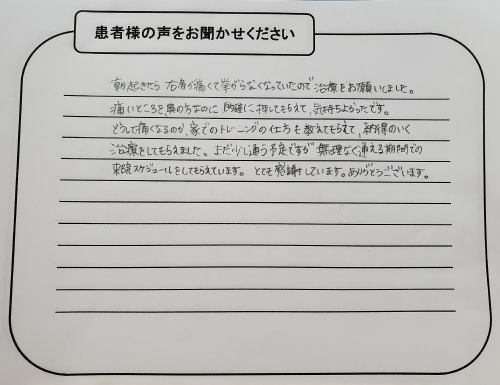 患者様の声をお聞かせください
朝起きたら右肩が痛くて挙がらなくなっていたので治療をお願いしました。
痛いところを奥の方なのに的確に押してもらえて、気持ちよかったです。
どうして痛くなるのか、家でのトレーニングの仕方も教えてもらえて、納得のいく
治療をしてもらえました。まだ少し通う予定ですが無理なく通える期間での
来院スケジュールをしてもらえています。とても感謝しています。ありがとうございます。